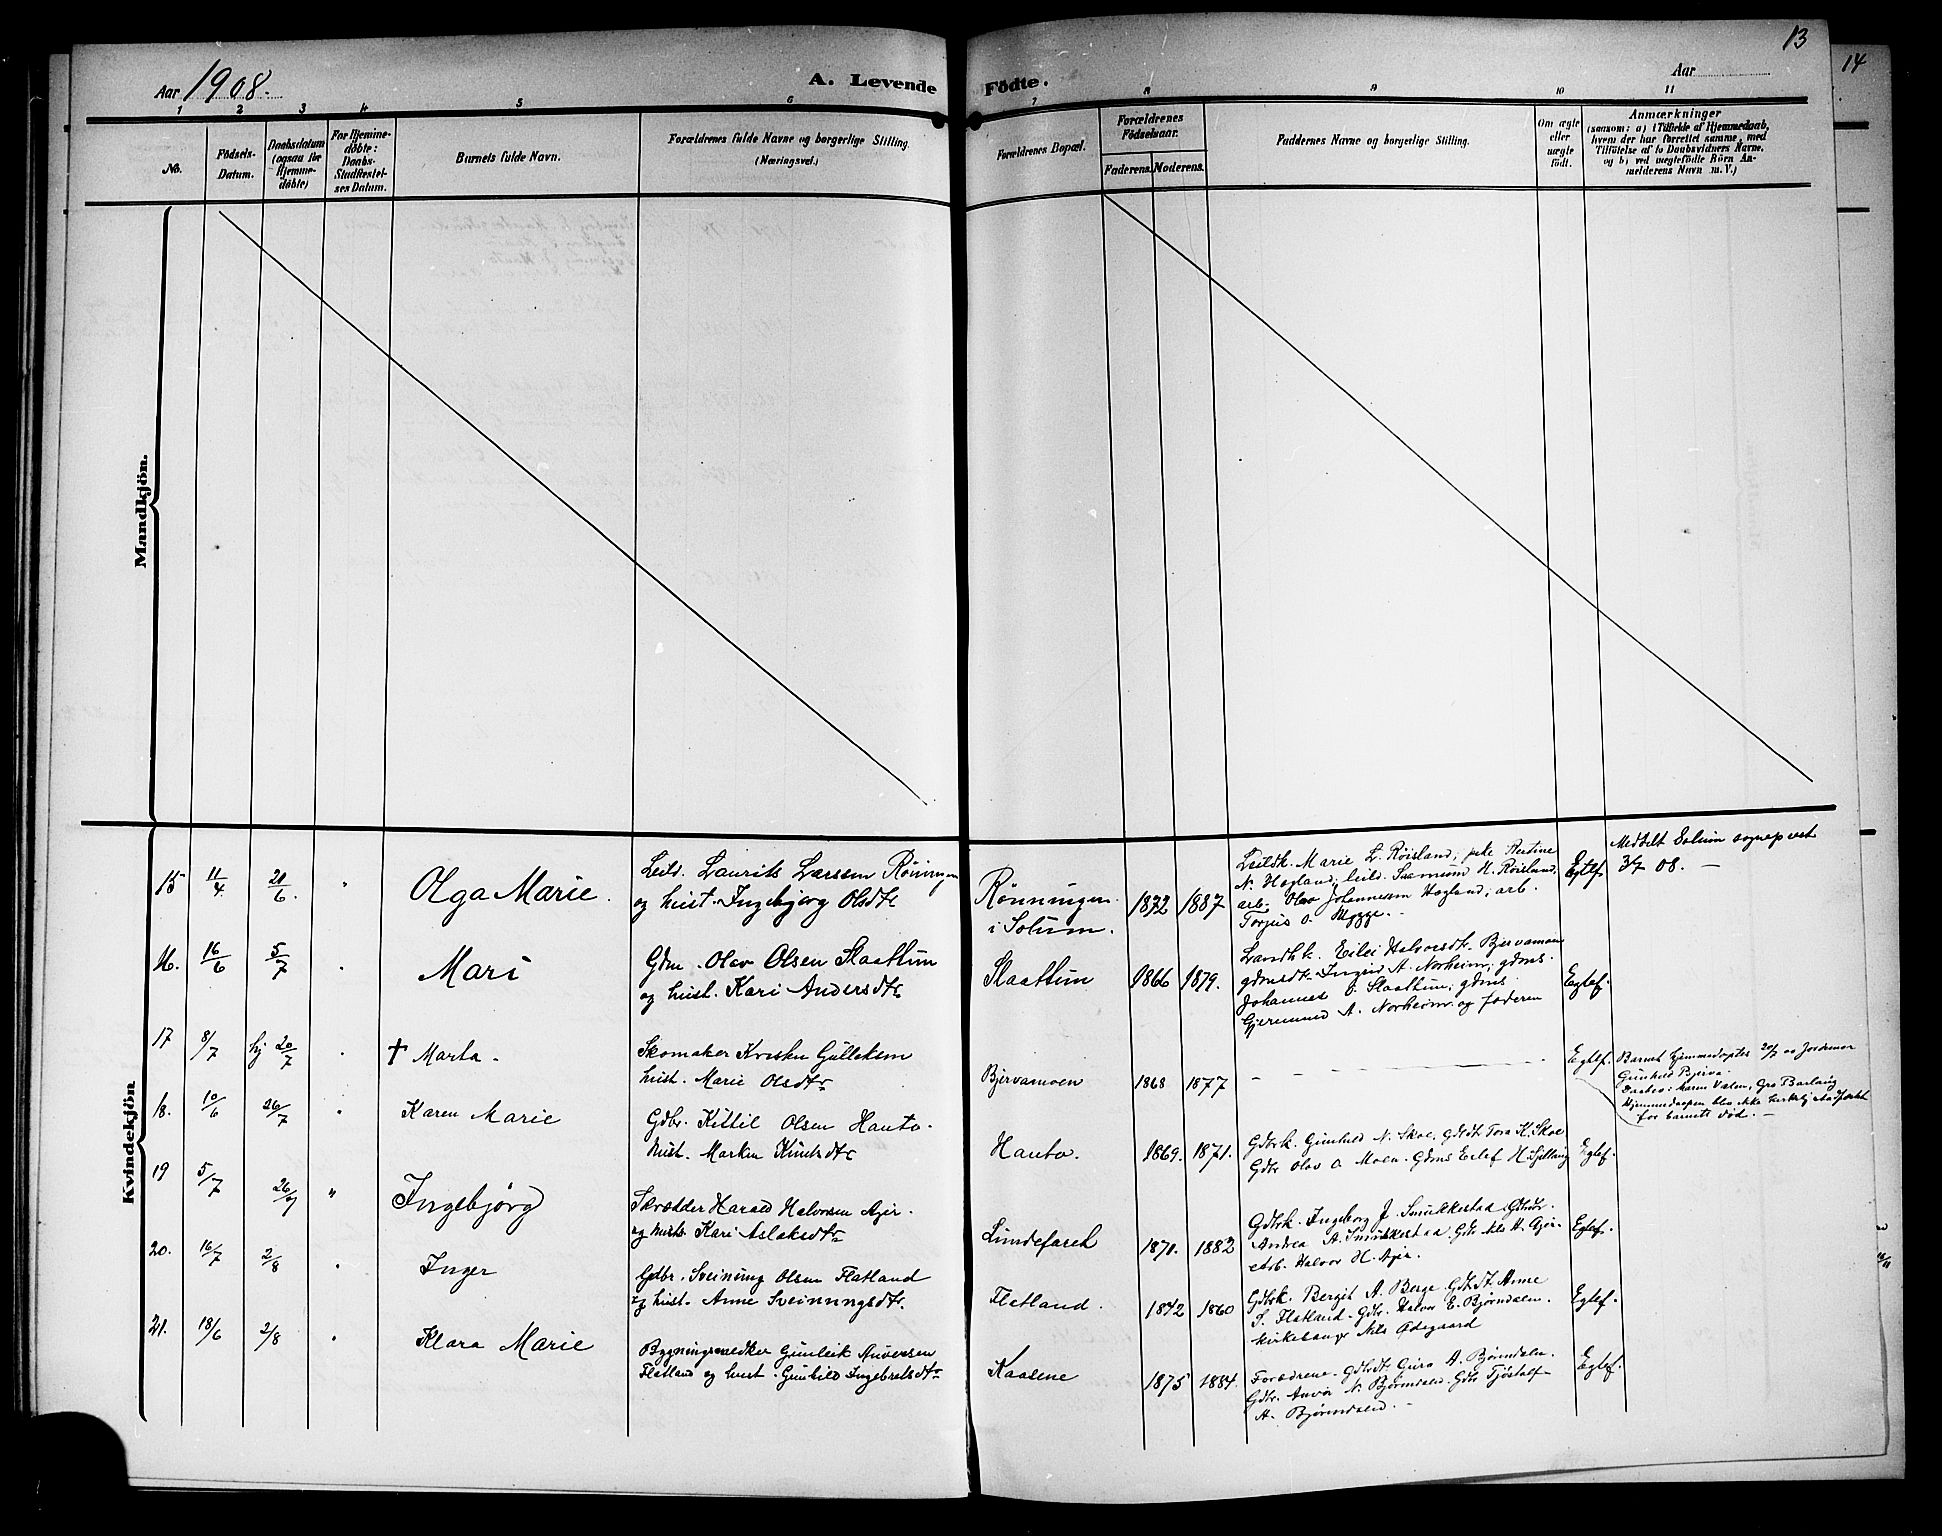 13
14
Aar 1908.
A. Levende
Födte.
Aar
1 2 3 4 5 6
7 8 9 10 11
No.
Födsels-
Datum.
Daabsdatum
(ogsaa for
Hjemme-
døbte)
For Hjemme-
døbte:
Daabs-
Stadfæstel-
ses Datum.
Barnets fulde Navn.
Forældrenes fulde Navne og borgerlige Stilling.
(Næringsvei.)
Forældrenes Bopæl.
Forældrenes
Födselsaar.
Faderens. Moderens.
Faddernes Navne og borgerlige Stilling.
Om ægte
eller
uægte
født.
Anmærkninger
(saasom: a) i Tilfælde af Hjemmedaab,
hvem der har forrettet samme, med
Tilføielse af to Daabsvidners Navne,
og b) ved uægtefödte Börn An-
melderens Navn m. V.)
Mandkjön.
Kvindekjön
15 11/4 21/6. " Olga Marie.
Leil. Laurits Larssen Röningen
og hust. Ingebjørg Olsdtr
Rønningen
i Solum.
1872 1887
Leildk. Marie L. Røisland; pike Bertine
N. Hogland; leild. Samum H. Røisland,
arb. Olav Johannessen Hogland; arb.
Torjus O. Mygge.
Egtef.
Meddelt Solum sogneprest
3/7 08. —
16. 16/6 5/7 " Mari
Gdm. Olav Olsen Slaattun
og hust. Kari Andersdtr
Slaattun
1866 1879.
Landhk. Eili Halvorsdtr. Bjervamoen
gdmsdtr. Ingrid A. Norheim; gdms.
Johannes O. Slaattun; gdms
Gjermund A. Norheim. og faderen
Egtef.
17 8/7 hj 20/7 " † Marta.
Skomaker Kristen Gulleksen
hust. Marie Olsdtr
Bjervamoen
1868 1877
Egtef.
Barnet hjemmedøptes 20/7 av Jordemor
Gunhild Bjerva.
Maren Valen, Gro Barlaug
Hjemmedaapen blev ikke kirkelig stadfæstet
for barnets död. —
18. 10/6 26/7 " Karen Marie
Gdbr. Kittil Olsen Hanto.
hust. Marken Knutsdtr
Hanto.
1869. 1871.
Gdbrk. Gunhild N. Skoe, gdbdt. Tora K. Skoe
Gdbr Olav O. Moen. Gdms Eilef H.
Egtef.
19 5/7 26/7 " Ingebjörg
Skrædder Harald Halvorsen Ajer.
og hust. Kari Aslaksdtr
Lundefaret
1871. 1882
Gdbrk. Ingeborg J. Smukkestad Gbdtr.
Andrea A. Smukkestad. Gdbr Nils H. Ajer.
Arb. Halvor H. Ajer.
Egtef.
20. 16/7 2/8 " Inger
Gdbr. Sveinung Olsen Flatland
og hust. Anne Sveinungsdtr.
Flatland.
1872 1860
Gdbrk. Bergit A. Berge Gdbdt. Anne
S. Flatland. Gdbr. Halvor E. Bjørndalen.
kirkesanger Nils Ødegaard
Egtef.
21. 18/6 2/8 " Klara Marie
Bygningssnedker Gunleik Anversen
Flatland og hust. Gunhild Ingebretsdtr
Kaasene
1875 1884.
Forældrene. Gdbdtr. Guro A. Bjørndalen.
Gdbr. Anver N. Bjørndalen. Gdbr Tjöstolf
A. Bjørndalen. —
Egtef.